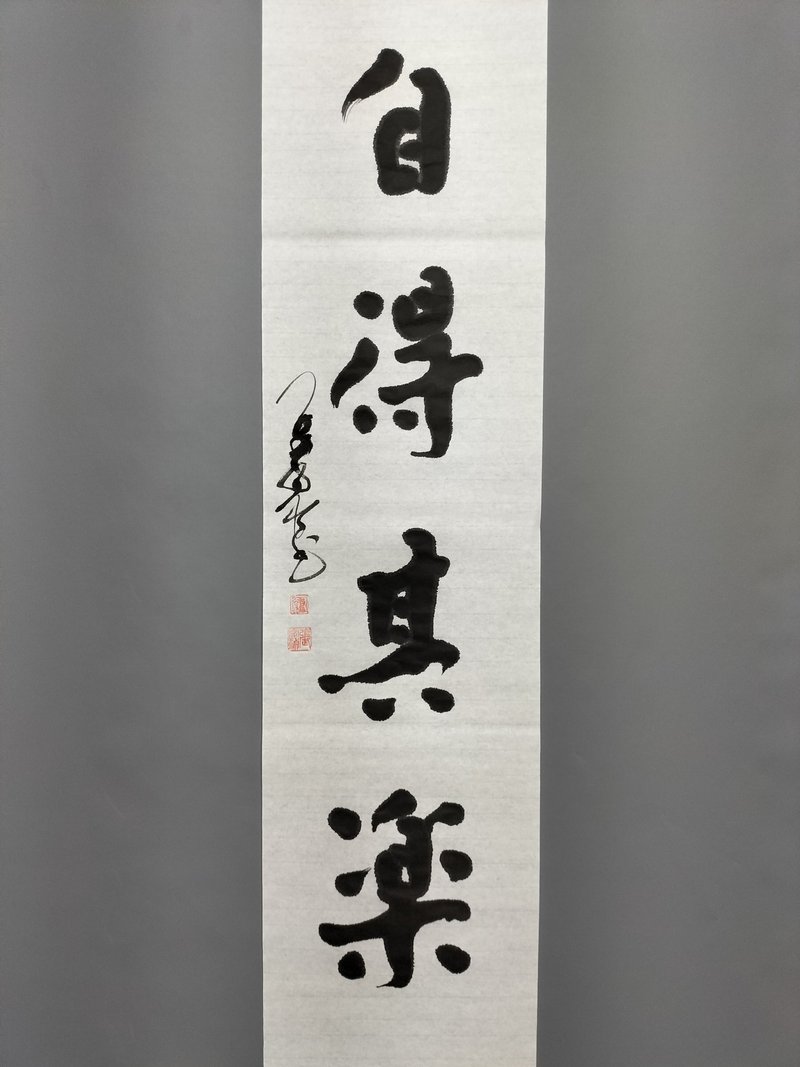 自得其楽